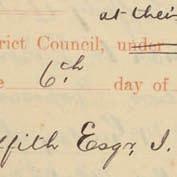 at their
rict Council, under
e 6th day of
ffith Esqr, J.